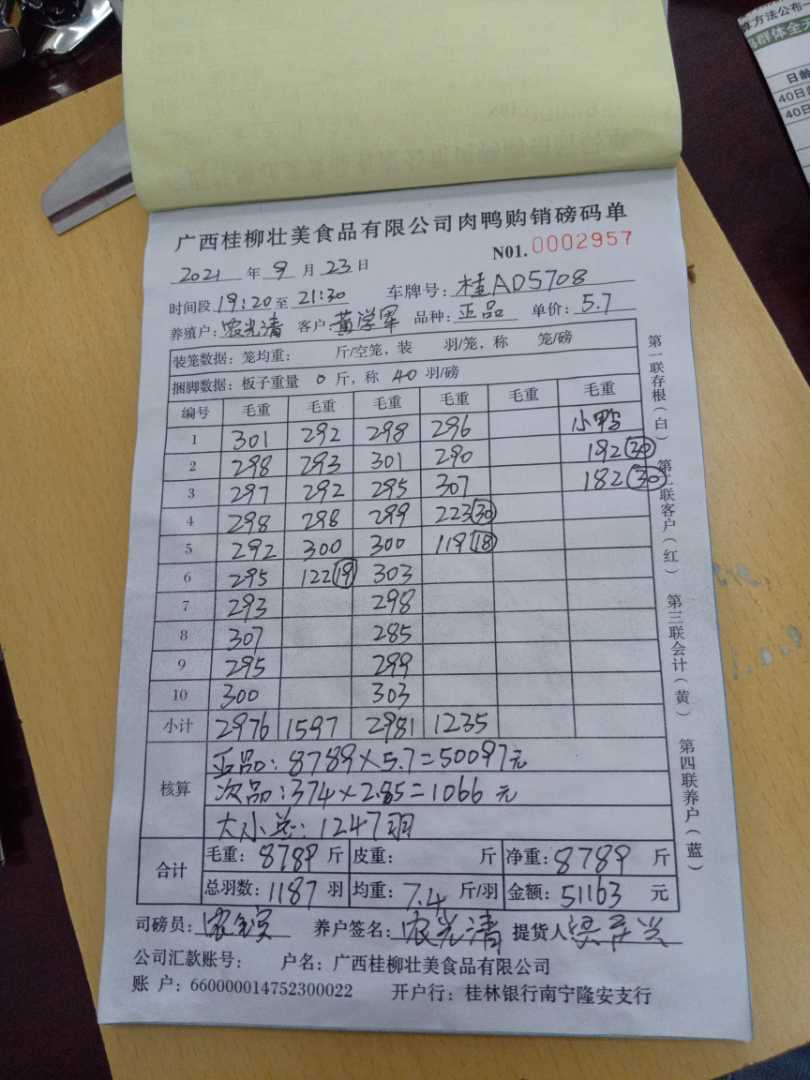 算方法公布一
群体全
日龄
40日
40日
广西桂柳壮美食品有限公司肉鸭购销磅码单
N01. 0002957
2021 年 9 月 23 日
时间段 19:20 至 21:30 车牌号: 桂AD5708
养殖户: 农光清 客户 黄学军 品种: 正品 单价: 5.7
装笼数据: 笼均重: 斤/空笼, 装 羽/笼, 称 笼/磅
捆脚数据: 板子重量 0 斤, 称 40 羽/磅
编号 毛重 毛重 毛重 毛重 毛重 毛重
1 301 292 298 296 小鸭
2 298 293 301 290 192 (30)
3 297 292 295 307 182 (30)
4 298 298 299 223 (30)
5 292 300 300 119 (18)
6 295 122 (19) 303
7 293 298
8 307 285
9 295 299
10 300 303
小计 2976 1597 2981 1235
核算
正品: 8789×5.7=50097元
次品: 374×2.85=1066 元
大小总: 1247羽
合计
毛重: 8789 斤 皮重: 斤 净重: 8789 斤
总羽数: 1187 羽 均重: 7.4 斤/羽 金额: 51163 元
司磅员: 养户签名: 农光清 提货人
公司汇款账号: 户名: 广西桂柳壮美食品有限公司
账 户: 660000014752300022 开户行: 桂林银行南宁隆安支行
第一联存根(白) 第二联客户(红) 第三联会计(黄) 第四联养户(蓝)